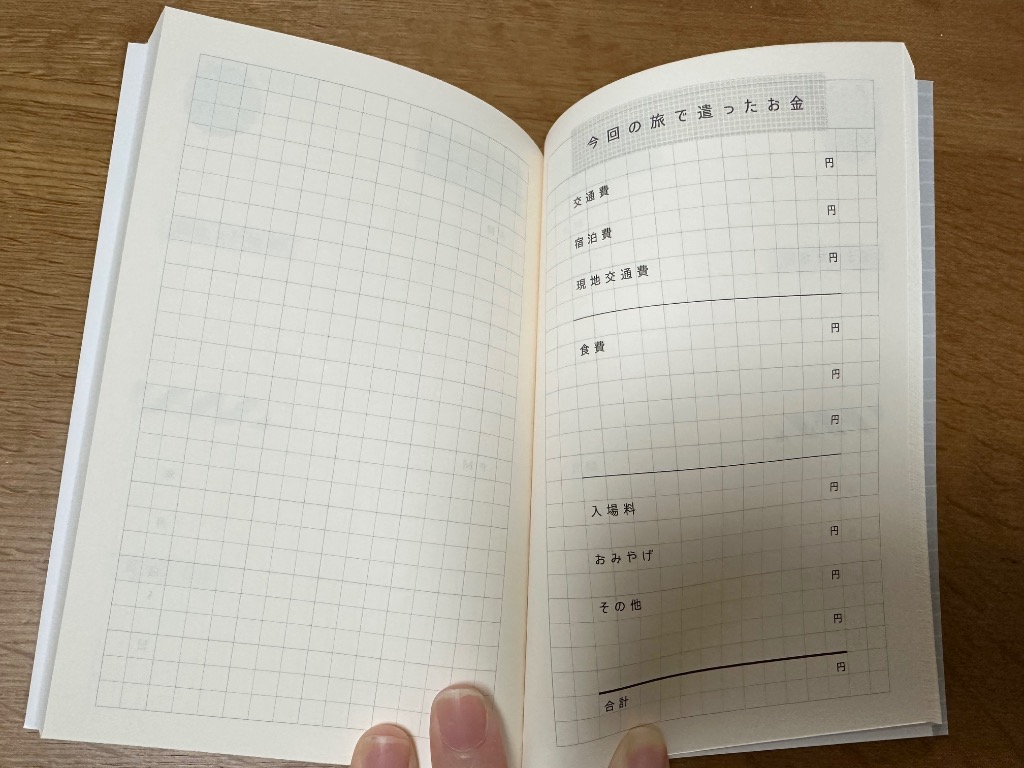 今回の旅で遣ったお金
交通費 円
宿泊費 円
現地交通費 円
食費 円
円
円
入場料 円
おみやげ 円
その他 円
円
合計 円